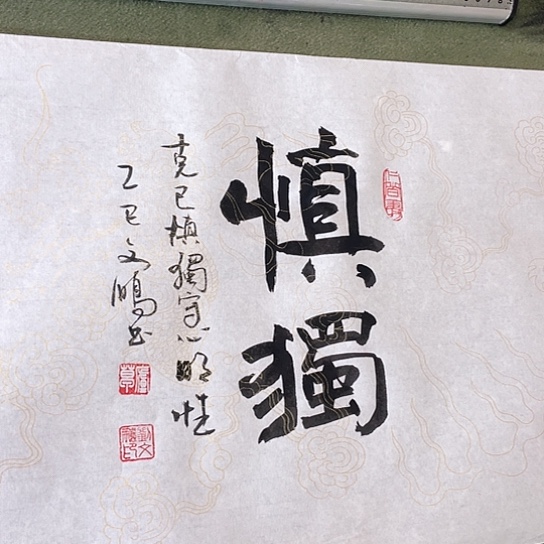 慎獨
克己慎獨守心明性
乙巳文鵬書